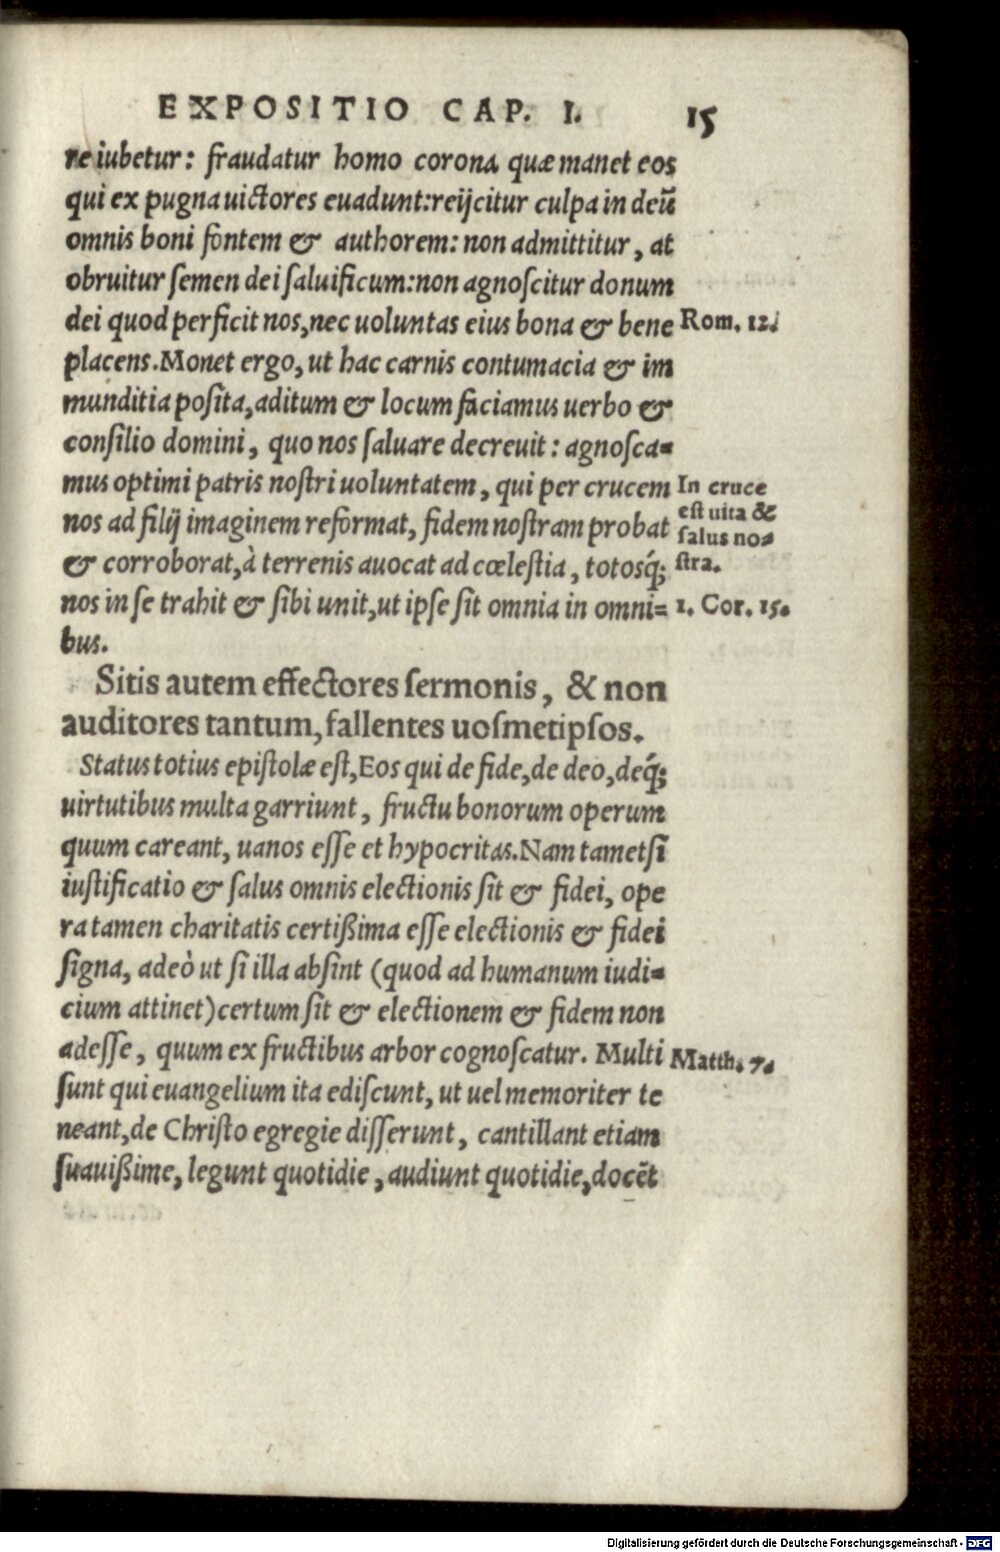 EXPOSITIO CAP. I. 15
re iubetur: fraudatur homo corona quæ manet eos
qui ex pugna uictores euadunt: reijcitur culpa in deū
omnis boni fontem & authorem: non admittitur, at
obruitur ſemen dei ſaluificum: non agnoſcitur donum
dei quod perficit nos, nec uoluntas eius bona & bene
Rom. 12.
placens. Monet ergo, ut hac carnis contumacia & im
munditia poſita, aditum & locum faciamus uerbo &
conſilio domini, quo nos ſaluare decreuit: agnoſca-
mus optimi patris noſtri uoluntatem, qui per crucem
nos ad filij imaginem reformat, fidem noſtram probat
& corroborat, à terrenis auocat ad cœleſtia, totosq́;
In cruce
eſt uita &
ſalus no-
ſtra.
nos in ſe trahit & ſibi unit, ut ipſe ſit omnia in omni-
1. Cor. 15.
bus.
Sitis autem effectores ſermonis, & non
auditores tantum, fallentes uoſmetipſos.
Status totius epiſtolæ eſt, Eos qui de fide, de deo, deq́;
uirtutibus multa garriunt, fructu bonorum operum
quum careant, uanos eſſe et hypocritas. Nam tametſi
iuſtificatio & ſalus omnis electionis ſit & fidei, ope
ra tamen charitatis certißima eſſe electionis & fidei
ſigna, adeò ut ſi illa abſint (quod ad humanum iudi-
cium attinet) certum ſit & electionem & fidem non
adeſſe, quum ex fructibus arbor cognoſcatur. Multi
Matth. 7.
ſunt qui euangelium ita ediſcunt, ut uel memoriter te
neant, de Chriſto egregie diſſerunt, cantillant etiam
ſuauißime, legunt quotidie, audiunt quotidie, docēt
Digitalisierung gefördert durch die Deutsche Forschungsgemeinschaft - DFG